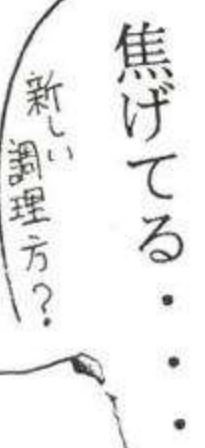 焦げてる・・・
新しい
調理方？